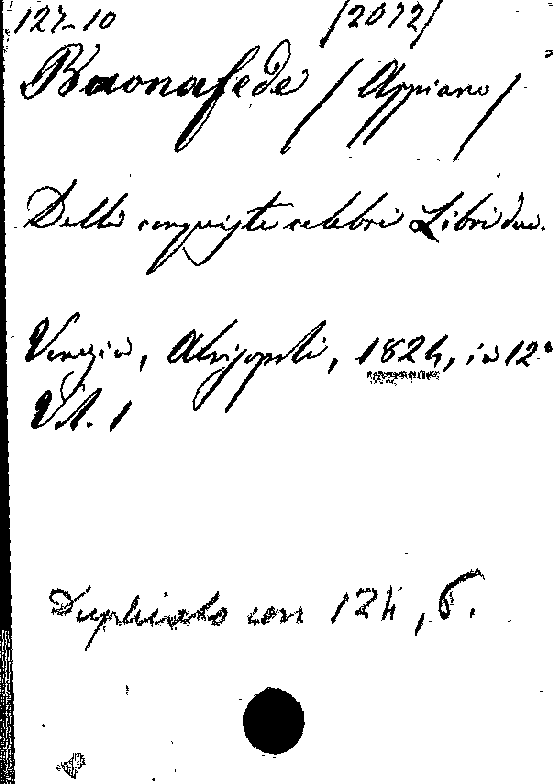 127-10 (2072)
Buonafede (Appiano)
Delle conquiste celebri Libri due.
Venezia, Alvisopoli, 1824, in 12°
Vol. 1
Duplicato con 124, 6.